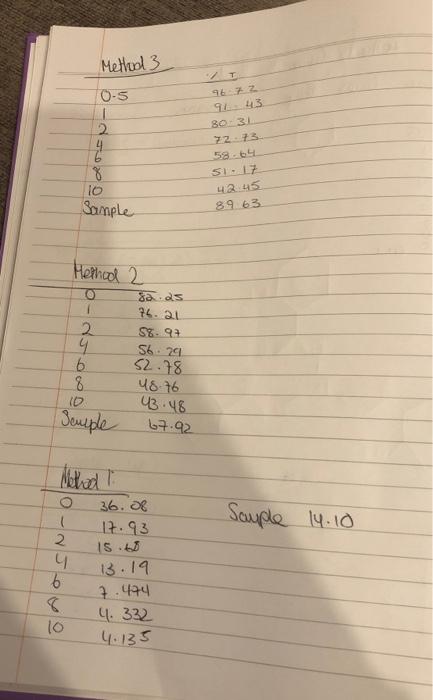 Method 3
% T
0.5 96.72
1 91.43
2 80.31
4 72.73
6 58.64
8 51.17
10 42.45
Sample 89.63
Method 2
0 82.25
1 76.21
2 58.97
4 56.29
6 52.78
8 48.76
10 43.48
Sample 67.92
Method 1:
0 36.08 Sample 14.10
1 17.93
2 15.68
4 13.19
6 7.474
8 4.332
10 4.135